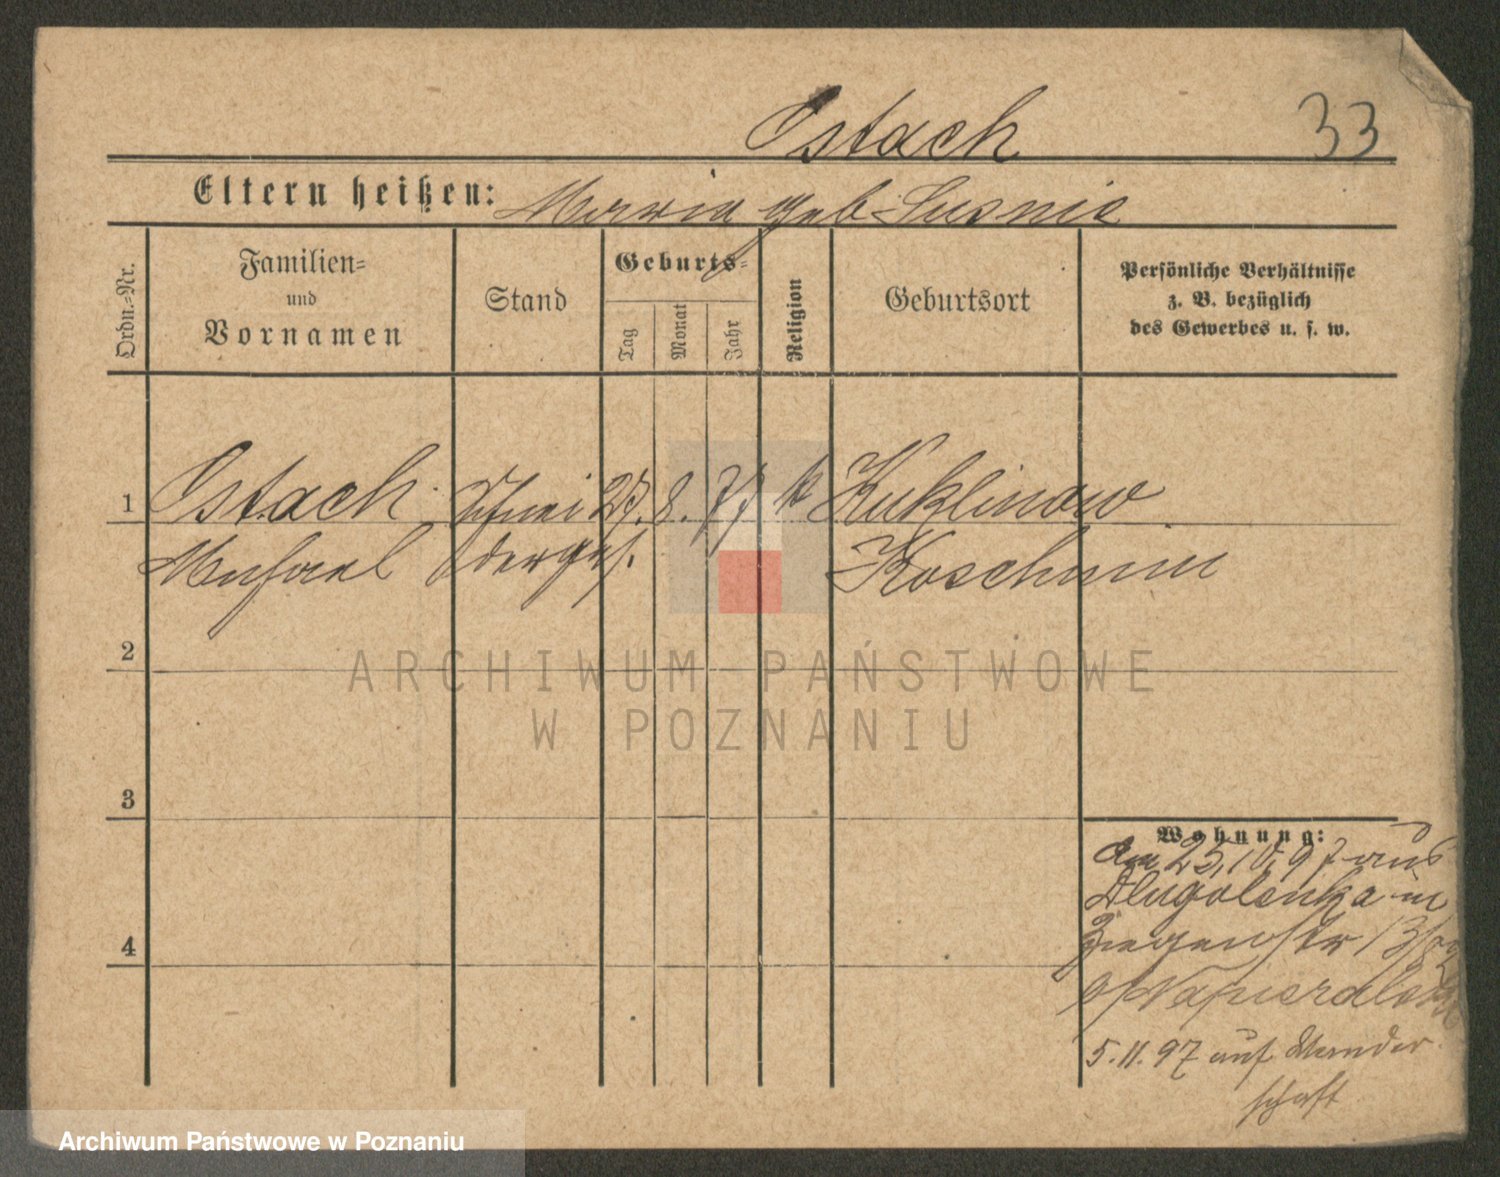 Ostach 33
Eltern heißen: Maria geb Susnic
Ordn.-Nr.
Familien-
und
Vornamen
Stand
Geburts-
Tag
Monat
Jahr
Religion
Geburtsort
Persönliche Verhältnisse
z. B. bezüglich
des Gewerbes u. s. w.
1 Ostach Schnei 27. 8. 77 k Kuklinow
Michael derges. Koschmin
2
3
4
Wohnung:
Am 25.10.97 aus
Dlugolenka in
Ziegenstr
5.11.97 auf Wander
schaft
ARCHIWUM PAŃSTWOWE
W POZNANIU
Archiwum Państwowe w Poznaniu